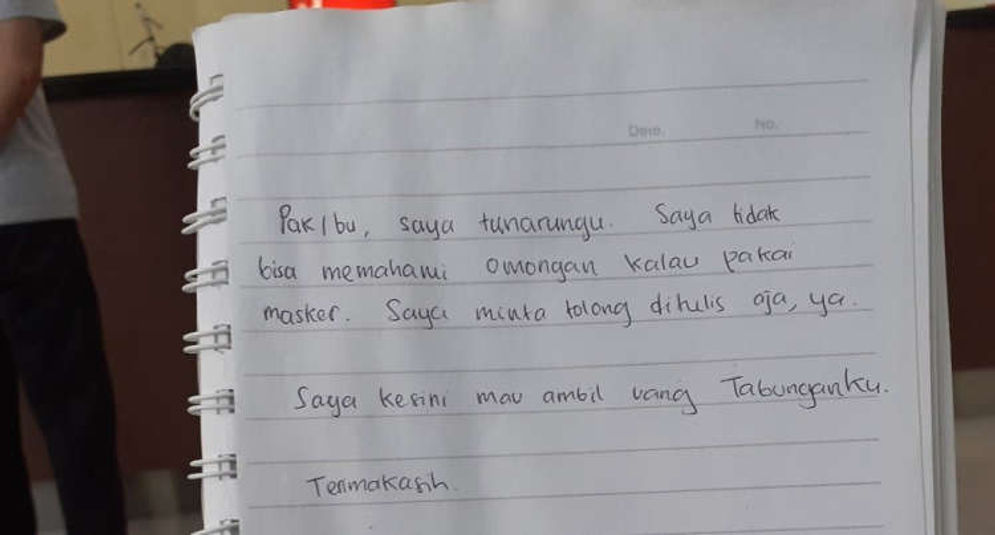 Date. No.
Pak/bu, saya tunarungu. Saya tidak
bisa memahami omongan kalau pakai
masker. Saya minta tolong ditulis aja, ya.
Saya kesini mau ambil uang Tabunganku.
Terimakasih.